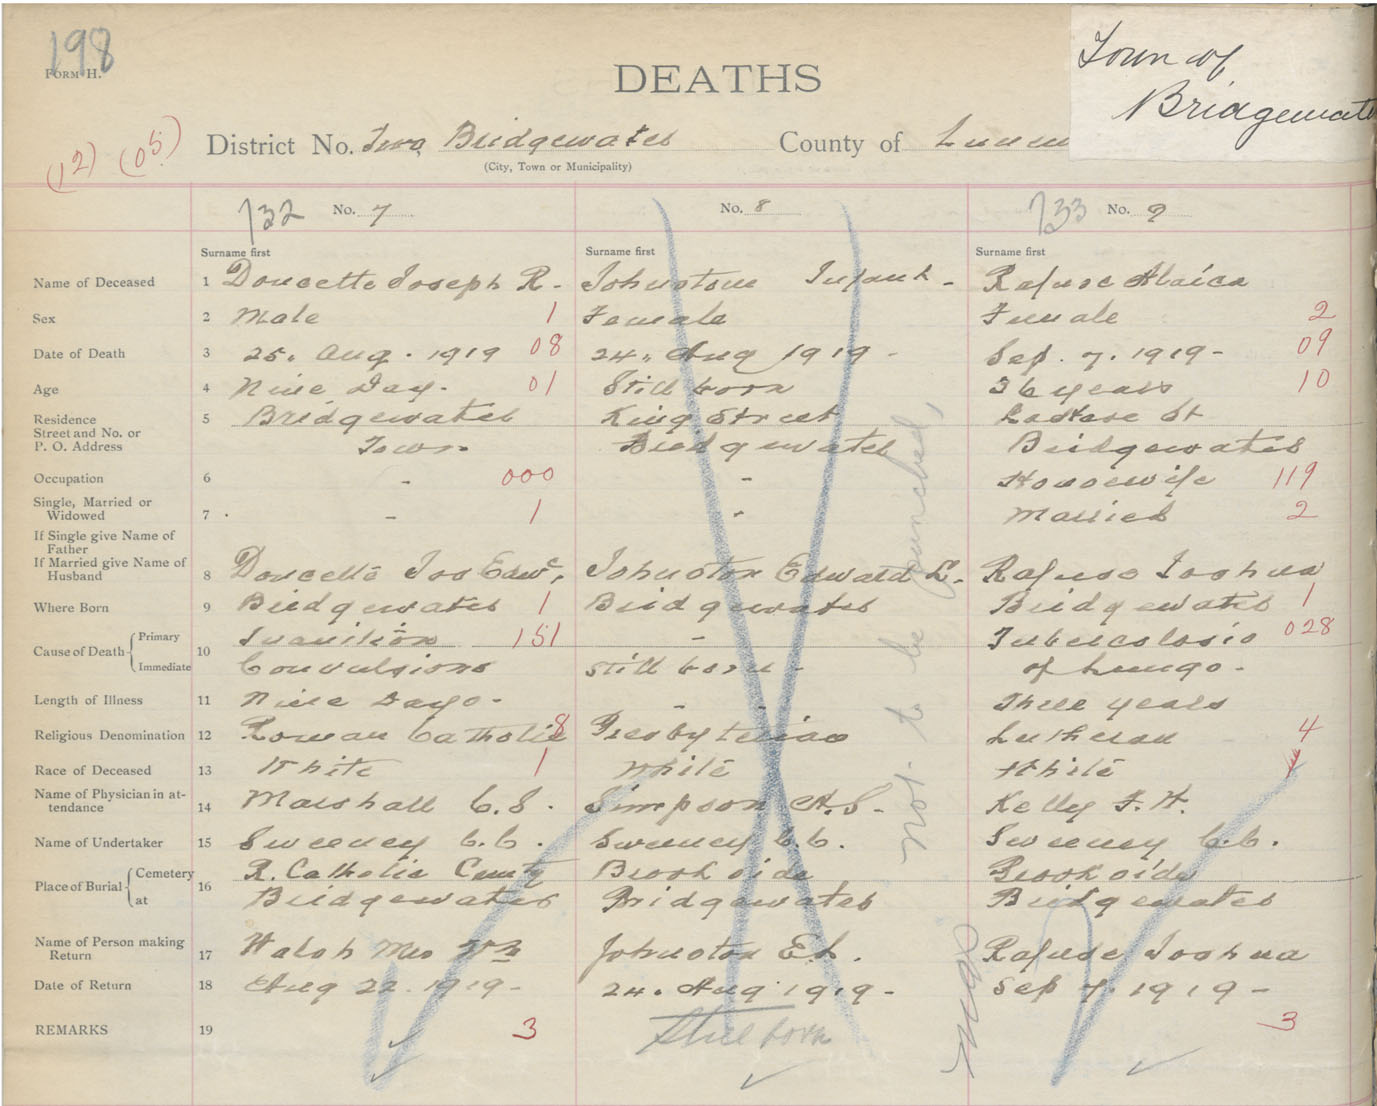 198
FORM H.
DEATHS
Town of
Bridgewate
(12) (05)
District No. Two, Bridgewater County of Lunen
(City, Town or Municipality)
732 No. 7 No. 8 733 No. 9
Surname first Surname first Surname first
Name of Deceased 1 Doucette Joseph R. - Johnston Infant - Rafuse
Sex 2 Male 1 Female Female 2
Date of Death 3 25. Aug. 1919 08 24. Aug 1919 - Sep. 7. 1919 - 09
Age 4 Nine Day. 01 Still born 36 years 10
Residence 5 Bridgewater King Street St
Street and No. or
P. O. Address Town. Bridgewater Bridgewater
Occupation 6 - 000 - Housewife 119
Single, Married or
Widowed 7 - 1 - Married 2
If Single give Name of
Father
If Married give Name of
Husband 8 Doucette Jos Edwd, Johnston Edward L. Rafuse Joshua
Where Born 9 Bridgewater 1 Bridgewater Bridgewater 1
Cause of Death Primary 10 Inanition 151 - Tuberculosis 028
Immediate Convulsions Still born - of Lungs -
Length of Illness 11 Nine Days - - - Three years
Religious Denomination 12 Roman Catholic 8 Presbyterian Lutheran 4
Race of Deceased 13 White 1 White White 1
Name of Physician in at-
tendance 14 Marshall C. S. Simpson H. S. - Kelly F. H.
Name of Undertaker 15 Sweeney C. C. Sweeney C. C. Sweeney C. C.
Place of Burial Cemetery 16 R. Catholic Cemty Brookside Brookside
at Bridgewater Bridgewater Bridgewater
Name of Person making
Return 17 Walsh Mrs Wm Johnston E L. Rafuse Joshua
Date of Return 18 Aug 22. 1919 - 24. Aug 1919 - Sep 7. 1919 -
REMARKS 19 3 Still born 3
not to be punched,